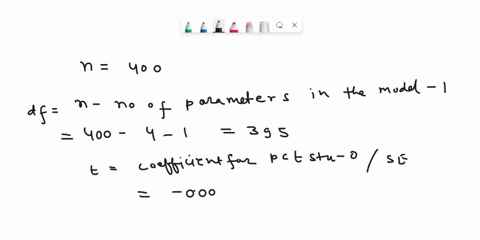 n = 400
df = n - no of parameters in the model - 1
= 400 - 4 - 1 = 395
t = coefficient for pct stu - 0 / SE
= -000